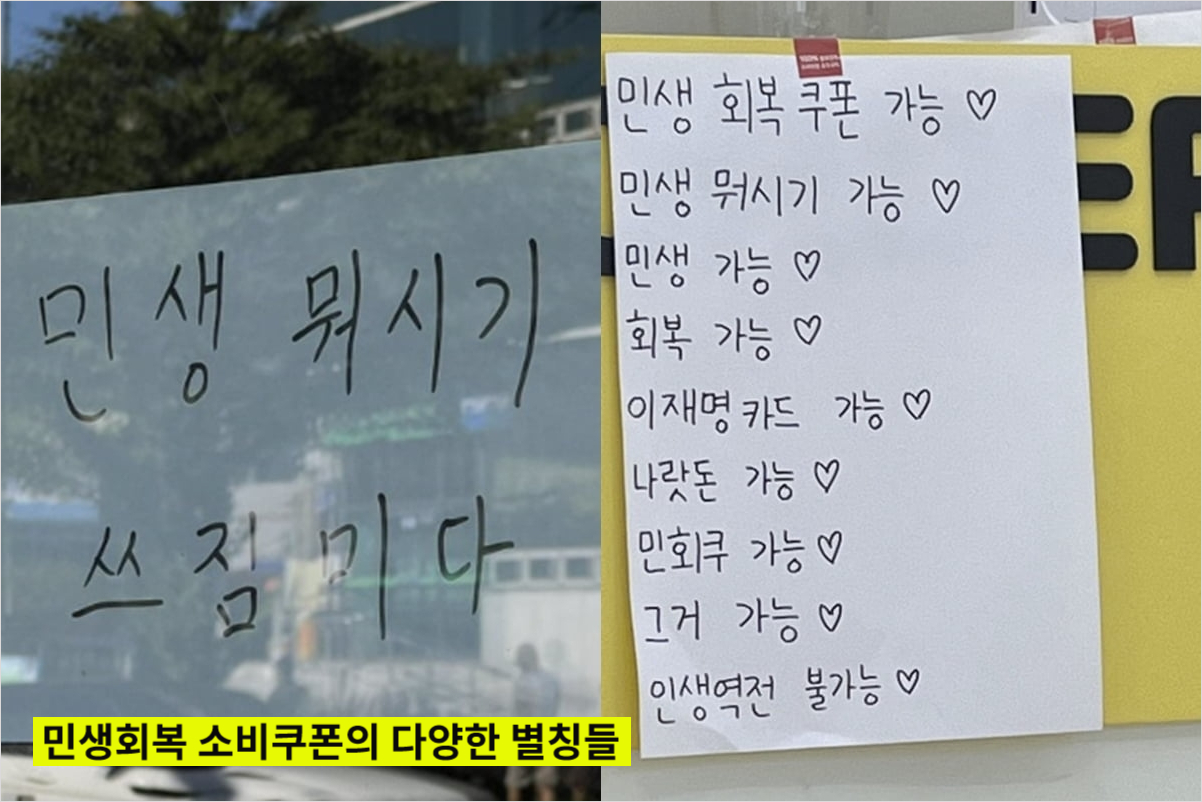 민생 뭐시기
쓰짐미다
민생 회복 쿠폰 가능 ♡
민생 뭐시기 가능 ♡
민생 가능 ♡
회복 가능 ♡
이재명 카드 가능 ♡
나랏돈 가능 ♡
민회쿠 가능 ♡
그거 가능 ♡
인생역전 불가능 ♡
민생회복 소비쿠폰의 다양한 별칭들